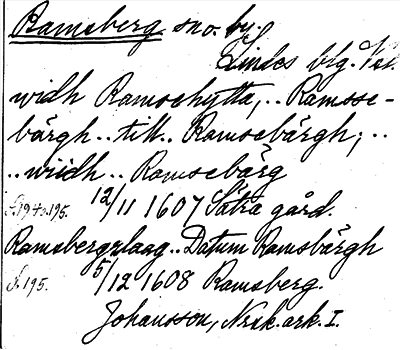 Ramsberg sno. by.
Lindes blg. Vsl.
widh Ramsehytta,.. Ramsse-
bärgh.. till.. Ramsebärgh; ..
..wiidh.. Ramsebärg
S. 194 o. 195. 12/11 1607 Sätra gård.
Ramsbergzlaag.. Datum Ramsbärgh
S. 195. 5/12 1608 Ramsberg.
Johansson, Nrsk. ark. I.